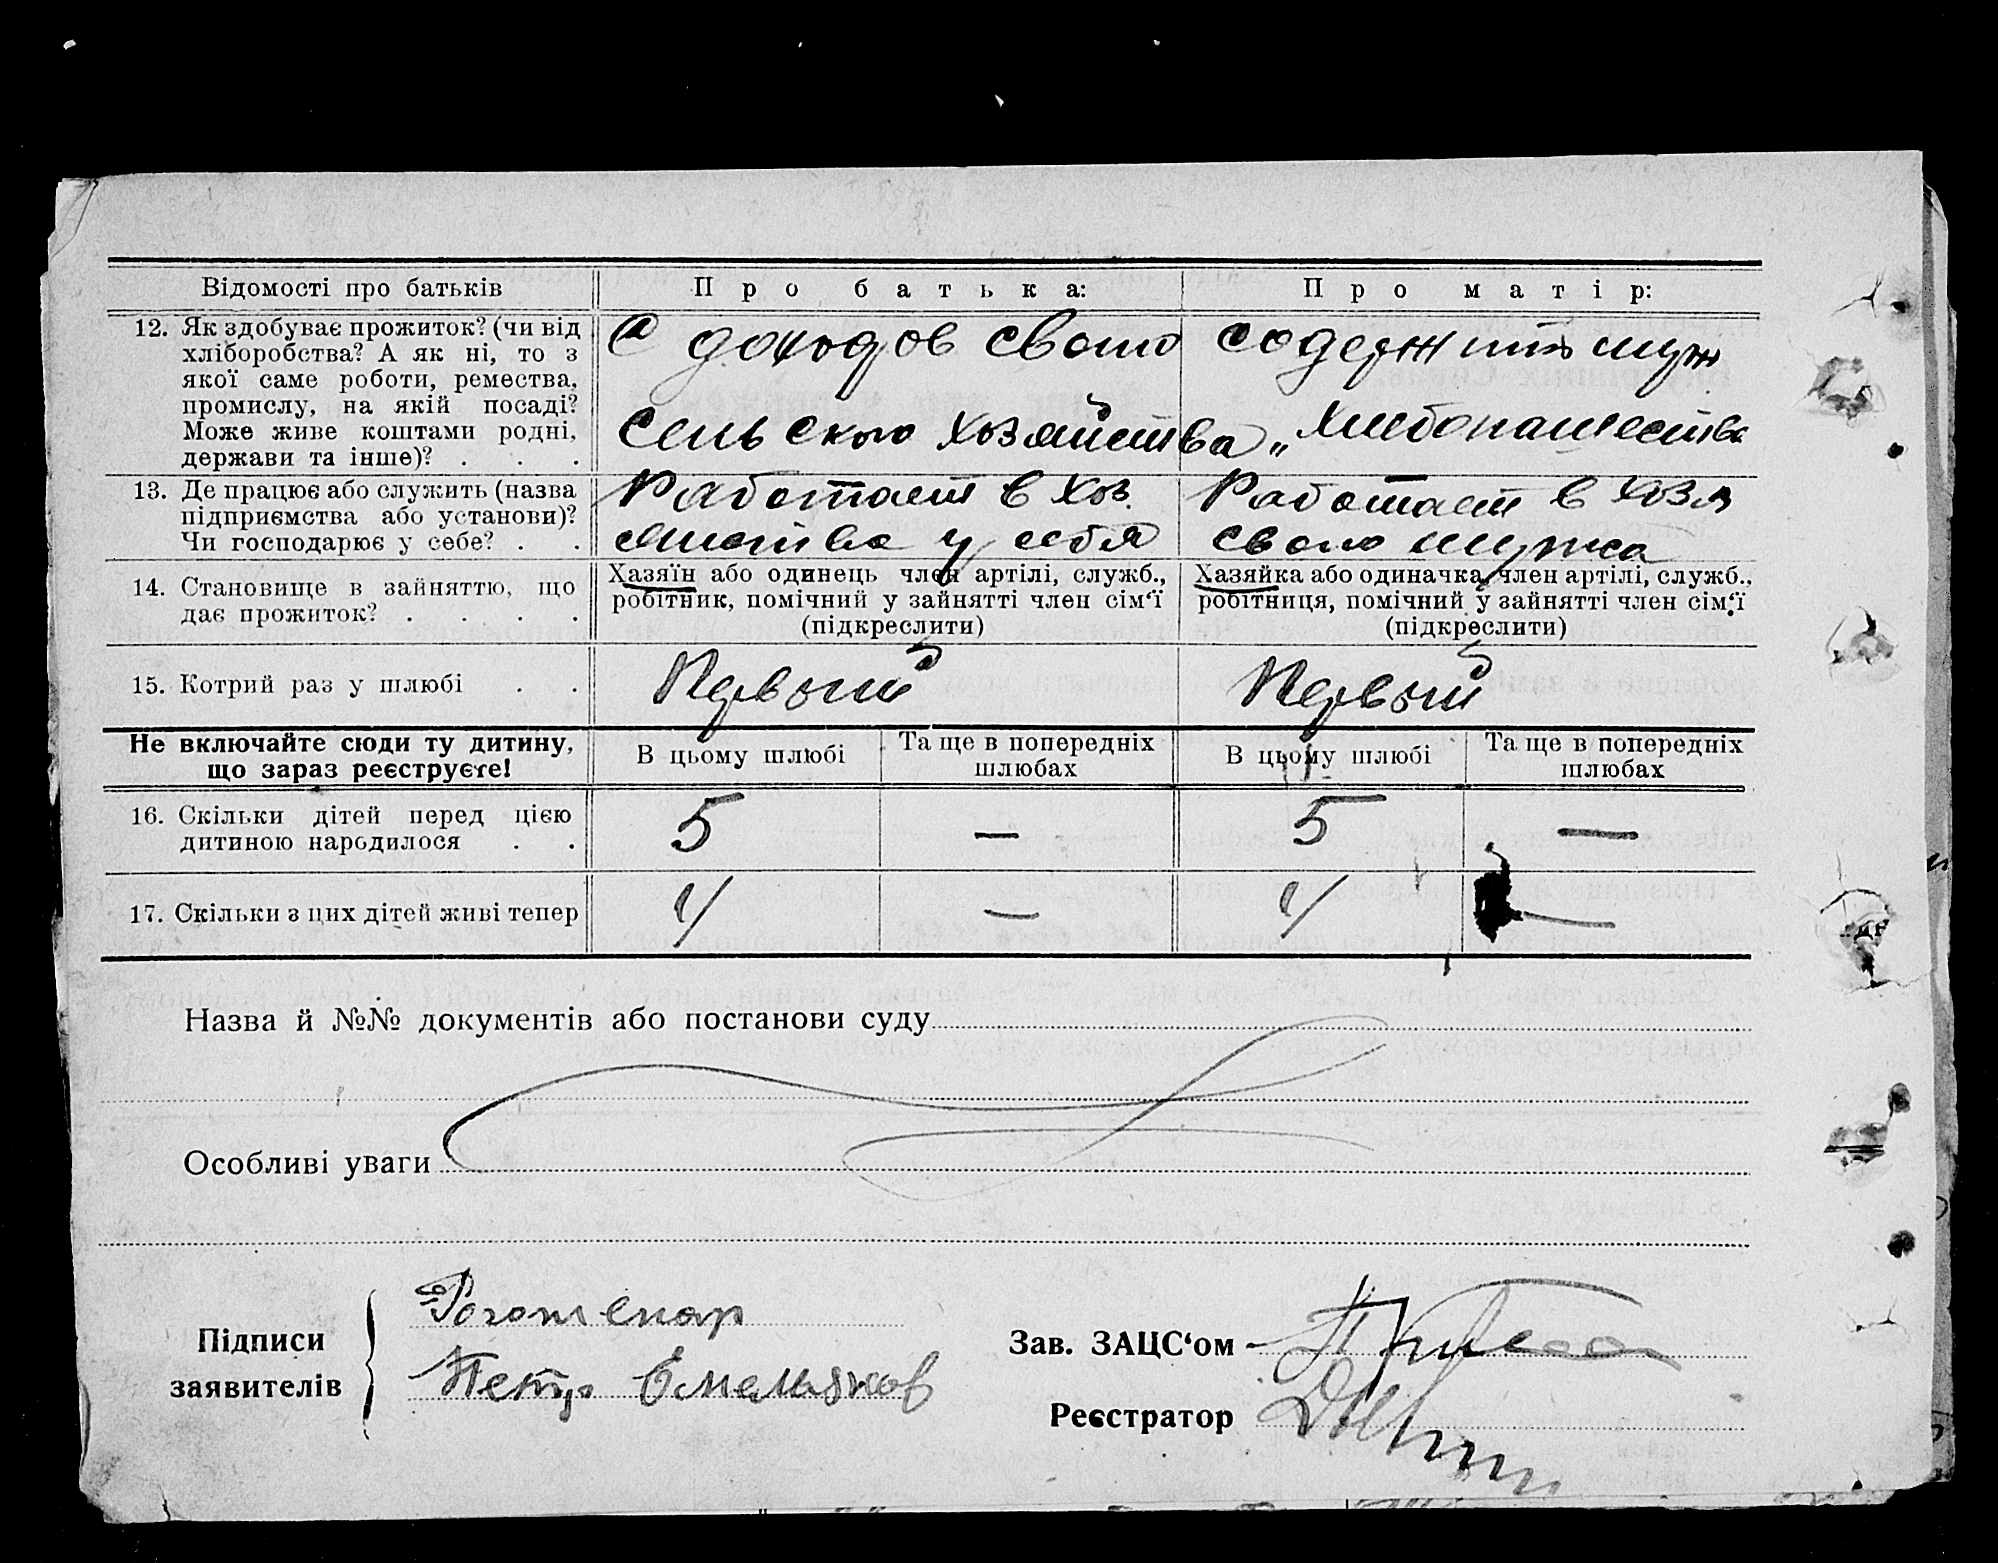 Відомості про батьків
Про батька:
Про матір:
12. Як здобуває прожиток? (чи від
хліборобства? А як ні, то з
якої саме роботи, ремества,
промислу, на якій посаді?
Може живе коштами родні,
держави та інше)? . . .
С доходов своего
сельского хозяйства
содержит муж
„Хлебопашества
13. Де працює або служить (назва
підприємства або установи)?
Чи господарює у себе? . .
Работает в хоз.
у себя
Работает в хозя
своего мужа
14. Становище в зайняттю, що
дає прожиток? . . . .
Хазяїн або одинець член артілі, служб.,
робітник, помічний у зайнятті член сім‘ї
(підкреслити)
Хазяйка або одиначка, член артілі, служб.,
робітниця, помічний у зайнятті член сім‘ї
(підкреслити)
15. Котрий раз у шлюбі . .
Первый
Первый
Не включайте сюди ту дитину,
що зараз реєструєте!
В цьому шлюбі
Та ще в попередніх
шлюбах
В цьому шлюбі
Та ще в попередніх
шлюбах
16. Скільки дітей перед цією
дитиною народилося . .
5
—
5
—
17. Скільки з цих дітей живі тепер
4
—
4
—
Назва й №№ документів або постанови суду
Особливі уваги
Підписи
заявителів
Петр Емельянов
Зав. ЗАЦС‘ом
Реєстратор